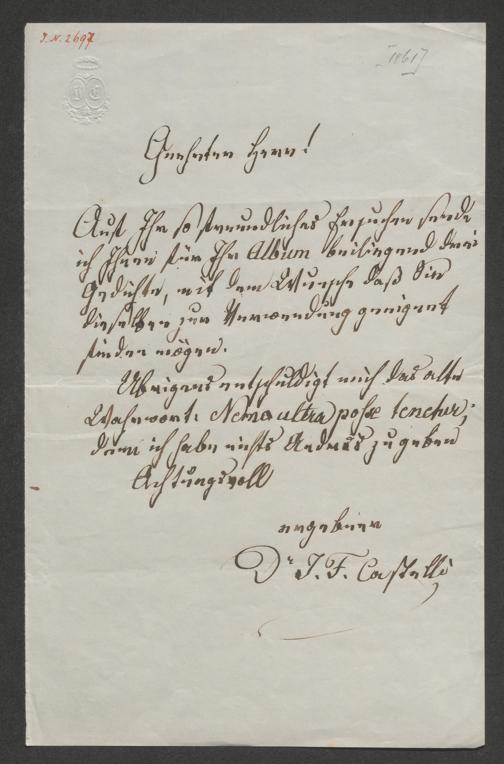 I.N. 2697
[1861]
Geehrter Herr!
Auf Ihr so freundliches Ersuchen sende
ich Ihnen für Ihr Album beiliegend drei
Gedichte, mit dem Wunsche daß Sie
dieselben zur Verwendung geeignet
finden mögen.
Übrigens entschuldigt mich das alte
Wahrwort: Nemo ultra posse tenetur;
denn ich habe nichts Anders zu geben
Achtungsvoll
ergebener
Dr I. F. Castelli